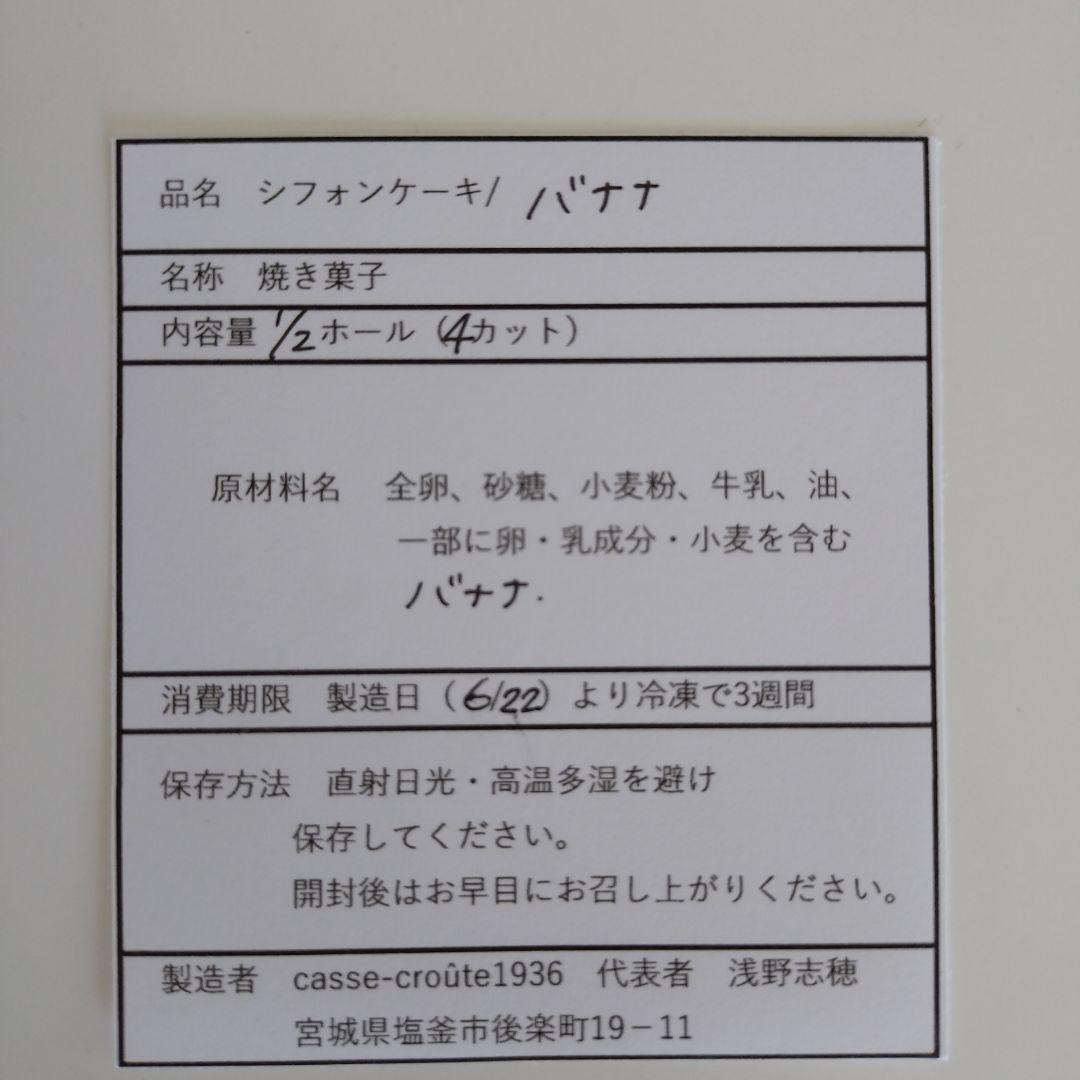 品名　シフォンケーキ/ バナナ
名称　焼き菓子
内容量 1/2ホール（4カット）
原材料名　全卵、砂糖、小麦粉、牛乳、油、
一部に卵・乳成分・小麦を含む
バナナ.
消費期限　製造日（6/22）より冷凍で3週間
保存方法　直射日光・高温多湿を避け
保存してください。
開封後はお早目にお召し上がりください。
製造者　casse-croûte1936　代表者　浅野志穂
宮城県塩釜市後楽町19－11